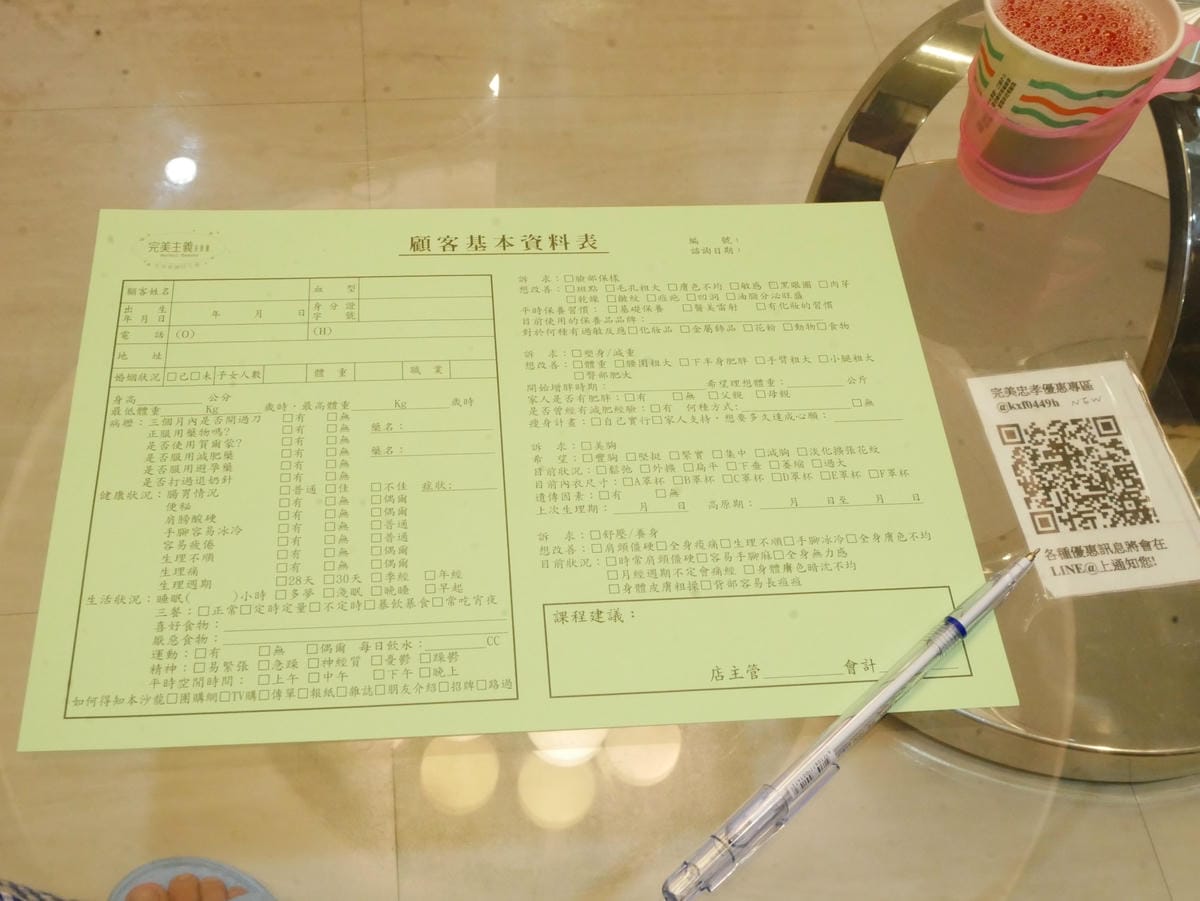 完美主義
顧客基本資料表
編　號：
諮詢日期：
顧客姓名　血　型
出　生
年月日　年　月　日　身分證
字　號
電　話　(O)　(H)
地　址
婚姻狀況　□已□未　子女人數　體　重　職　業
身高______公分
最低體重______Kg______歲時，最高體重______Kg______歲時
病歷：三個月內是否開過刀　□有　□無
正服用藥物嗎？　□有　□無　藥名：______
是否使用賀爾蒙？　□有　□無
是否服用減肥藥　□有　□無　藥名：______
是否服用避孕藥　□有　□無
是否打過退奶針　□有　□無
健康狀況：腸胃情況　□普通　□佳　□不佳　症狀：______
便秘　□有　□無　□偶爾
肩膀酸硬　□有　□無　□偶爾
手腳容易冰冷　□有　□無　□普通
容易疲倦　□有　□無　□普通
生理不順　□有　□無　□偶爾
生理痛　□有　□無　□偶爾
生理週期　□28天　□30天　□季經　□年經
生活狀況：睡眠(　　)小時　□多夢　□淺眠　□晚睡　□早起
三餐：□正常□定時定量□不定時□暴飲暴食□常吃宵夜
喜好食物：______
厭惡食物：______
運動：□有　□無　□偶爾　每日飲水：______CC
精神：□易緊張　□急躁　□神經質　□憂鬱　□躁鬱
平時空閒時間：　□上午　□中午　□下午　□晚上
如何得知本沙龍□團購網□TV購□傳單□報紙□雜誌□朋友介紹□招牌□路過
訴　求：□臉部保樣
想改善：□斑點　□毛孔粗大　□膚色不均　□敏感　□黑眼圈　□肉芽
□乾燥　□皺紋　□痘疤　□凹洞　□油脂分泌旺盛
平時保養習慣：　□基礎保養　□醫美雷射　□有化妝的習慣
目前使用的保養品品牌：______
對於何種有過敏反應□化妝品　□金屬飾品　□花粉　□動物□食物
訴　求：□塑身/減重
想改善：□體重　□腰圍粗大　□下半身肥胖　□手臂粗大　□小腿粗大
□臀部肥大
開始增胖時期：______希望理想體重：______公斤
家人是否有肥胖：□有　□無　□父親　□母親
是否曾經有減肥經驗：□有　何種方式：______□無
瘦身計畫：□自己實行□家人支持，想要多久達成心願：______
訴　求：□美胸
希　望：□豐胸　□堅挺　□緊實　□集中　□減胸　□淡化擴張花紋
目前狀況：□鬆弛　□外擴　□扁平　□下垂　□萎縮　□過大
目前內衣尺寸：□A罩杯　□B罩杯　□C罩杯　□D罩杯　□E罩杯　□F罩杯
遺傳因素：□有　□無
上次生理期：____月____日　高原期：____月____日至____月____日
訴　求：□舒壓/養身
想改善：□肩頸僵硬□全身痠痛□生理不順□手腳冰冷□全身膚色不均
目前狀況：□時常肩頸僵硬□容易手腳麻□全身無力感
□月經週期不定會痛經　□身體膚色暗沈不均
□身體皮膚粗操□背部容易長痘痘
課程建議：
店主管______會計______
完美忠孝優惠專區
@kxf0449h　NEW
各種優惠訊息將會在
LINE@上通知您!